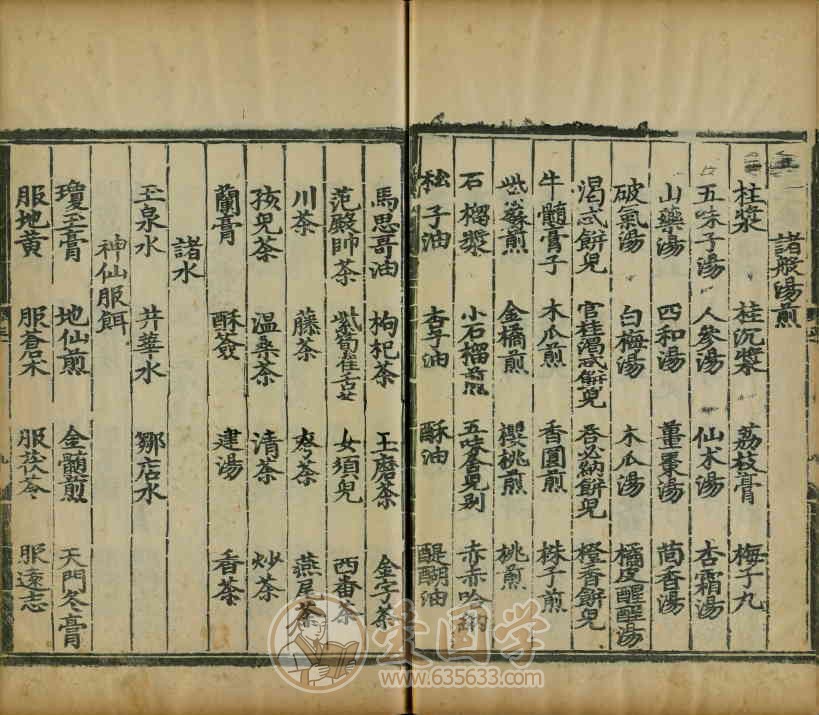 諸般湯煎
桂漿 桂沉漿 荔枝膏 梅子丸
五味子湯 人參湯 仙术湯 杏霜湯
山藥湯 四和湯 薑棗湯 茴香湯
破氣湯 白梅湯 木瓜湯 橘皮醒酲湯
渴忒餅兒 官桂渴忒餅兒 荅必納餅兒 橙香餅兒
牛髓膏子 木瓜煎 香圓煎 株子煎
紫蘇煎 金橘煎 櫻桃煎 桃煎
石榴漿 小石榴煎 五味舍兒别 赤赤哈納
松子油 杏子油 酥油 醍醐油
馬思哥油 枸杞茶 玉磨茶 金字茶
范殿帥茶 紫筍雀舌茶 女須兒 西番茶
川茶 藤茶 夸茶 燕尾茶
孩兒茶 温桑茶 清茶 炒茶
蘭膏 酥簽 建湯 香茶
諸水
玉泉水 井華水 鄒店水
神仙服餌
瓊玉膏 地仙煎 金髓煎 天門冬膏
服地黄 服蒼术 服茯苓 服遠志
爱国学
www.635633.com